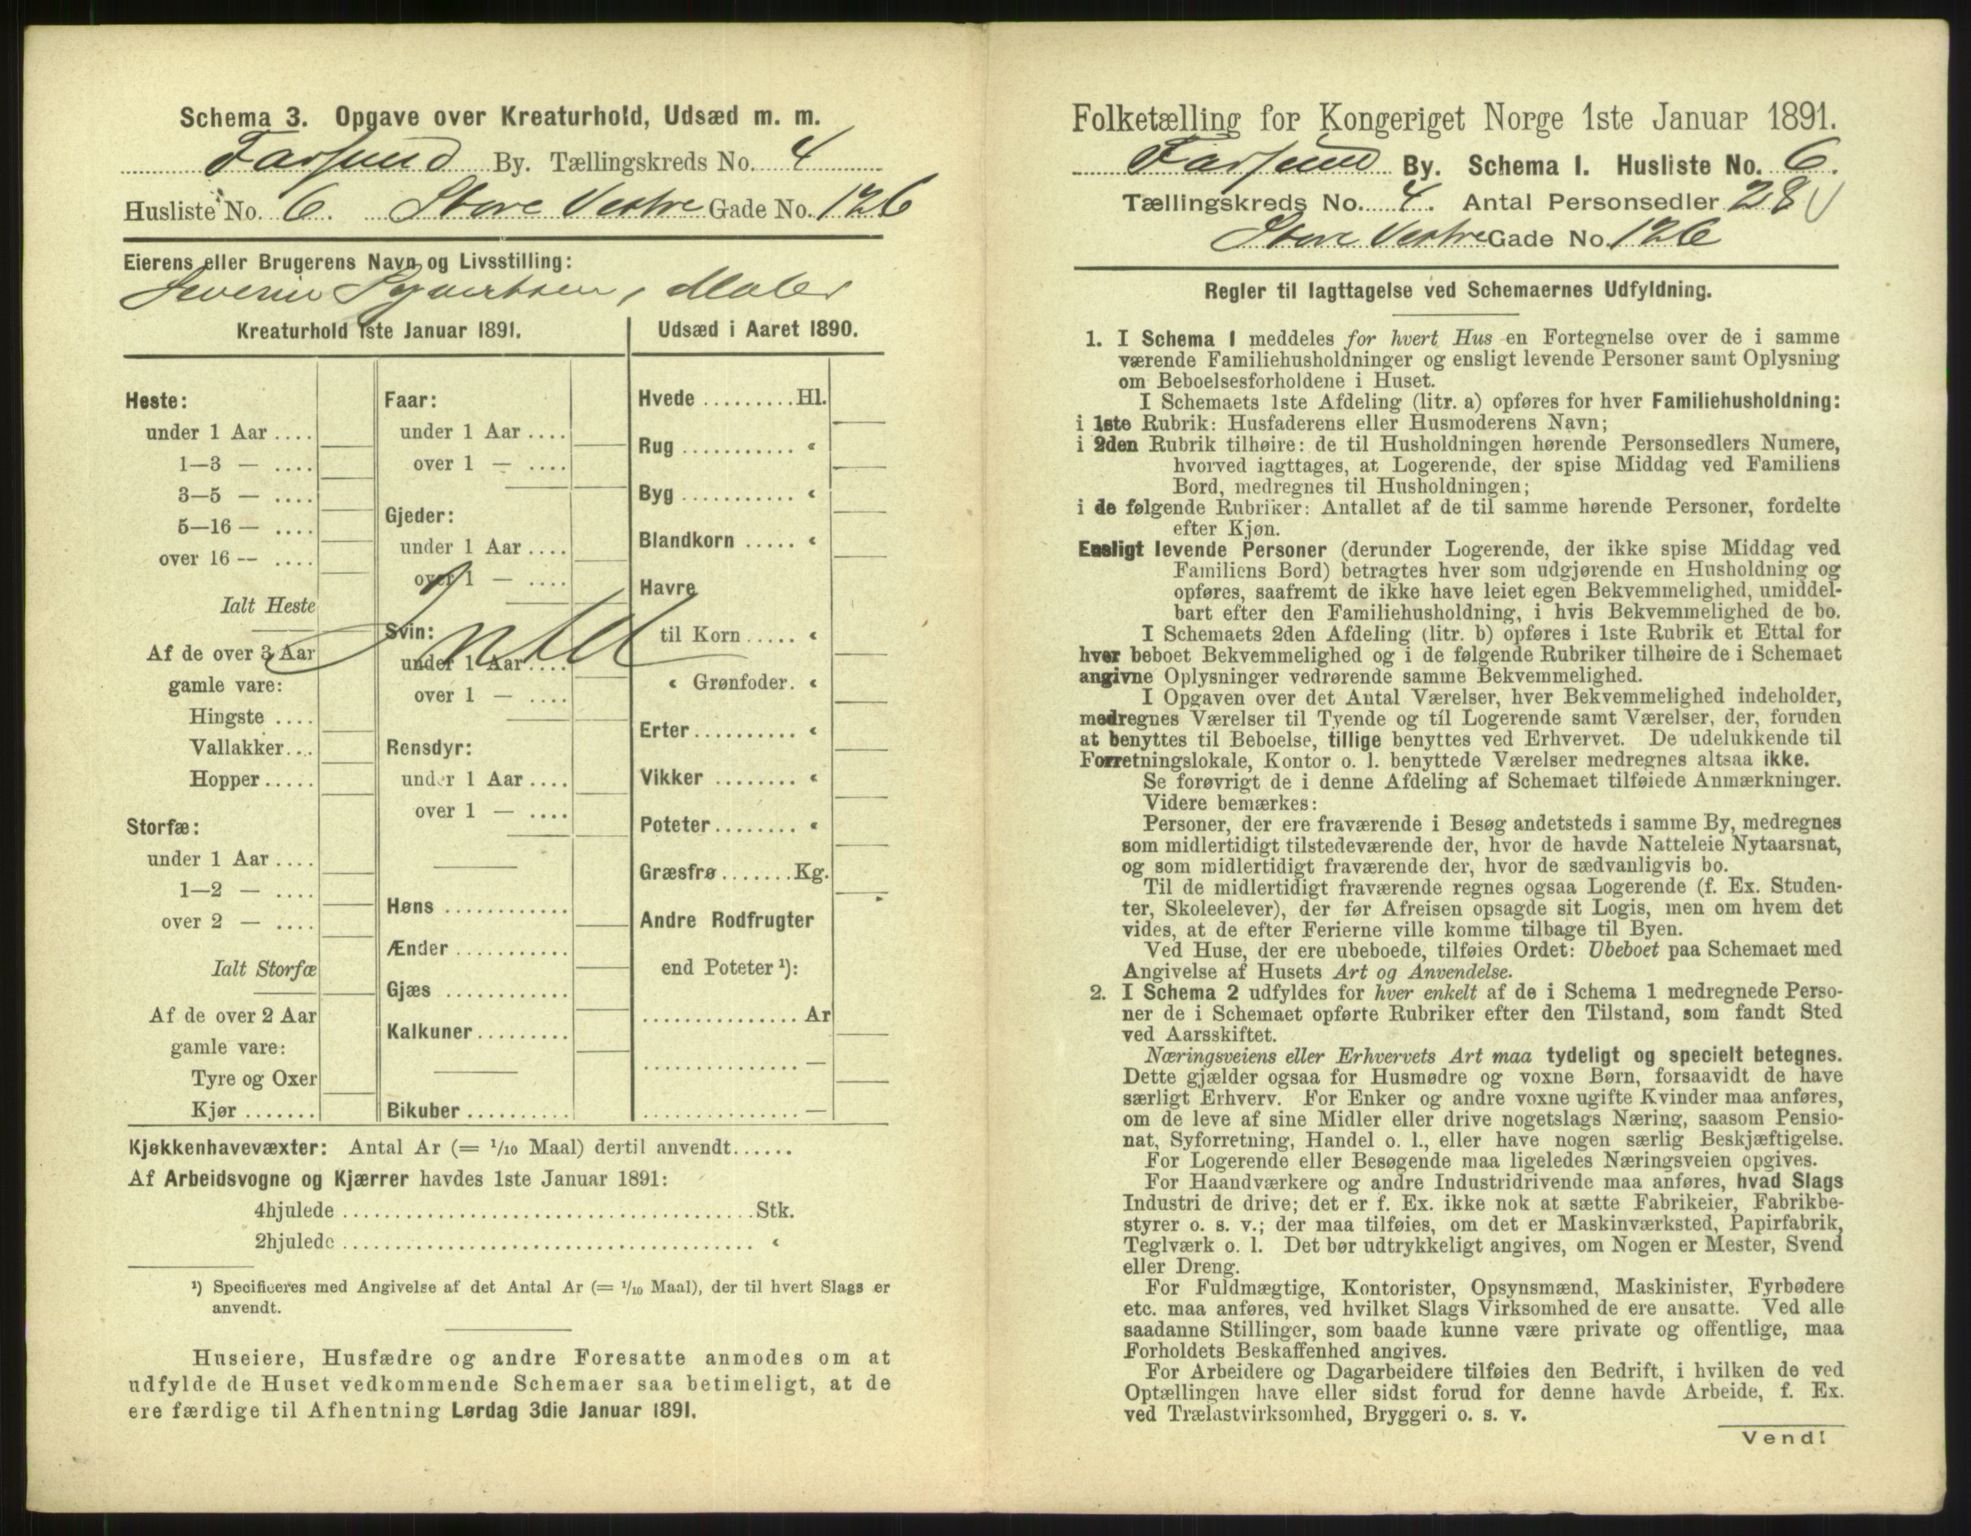 Schema 3. Opgave over Kreaturhold, Udsæd m. m.
Farsund By. Tællingskreds No. 4
Husliste No. 6. Store Vestre Gade No. 126
Eierens eller Brugerens Navn og Livsstilling:
Severin Maler
Kreaturhold 1ste Januar 1891.
Heste:
under 1 Aar ....
1—3 — ....
3—5 — ....
5—16 — ....
over 16 — ....
Ialt Heste
Af de over 3 Aar
gamle vare:
Hingste ....
Vallakker...
Hopper.....
Storfæ:
under 1 Aar ....
1—2 — ....
over 2 — ....
Ialt Storfæ
Af de over 2 Aar
gamle vare:
Tyre og Oxer
Kjør .......
Faar:
under 1 Aar ....
over 1 — ....
Gjeder:
under 1 Aar ....
over 1 — ....
Svin:
Intet
under 1 Aar....
over 1 — ....
Rensdyr:
under 1 Aar ....
over 1 — ....
Høns ............
Ænder ............
Gjæs ............
Kalkuner.........
Bikuber ..........
Udsæd i Aaret 1890.
Hvede .........Hl.
Rug ........... “
Byg ........... “
Blandkorn ..... “
Havre
til Korn ..... “
“ Grønfoder. “
Erter.......... “
Vikker ........ “
Poteter........ “
Græsfrø.......Kg.
Andre Rodfrugter
end Poteter ¹):
............... Ar
............... —
............... —
Kjøkkenhavevæxter: Antal Ar (= 1/10 Maal) dertil anvendt......
Af Arbeidsvogne og Kjærrer havdes 1ste Januar 1891:
4hjulede ........................................Stk.
2hjulede ........................................ “
¹) Specificeres med Angivelse af det Antal Ar (= 1/10 Maal), der til hvert Slags er
anvendt.
Huseiere, Husfædre og andre Foresatte anmodes om at
udfylde de Huset vedkommende Schemaer saa betimeligt, at de
ere færdige til Afhentning Lørdag 3die Januar 1891.
Folketælling for Kongeriget Norge 1ste Januar 1891.
Farsund By. Schema I. Husliste No. 6.
Tællingskreds No. 4. Antal Personsedler 28
Store Vestre Gade No. 126
Regler til Iagttagelse ved Schemaernes Udfyldning.
1. I Schema I meddeles for hvert Hus en Fortegnelse over de i samme
værende Familiehusholdninger og ensligt levende Personer samt Oplysning
om Beboelsesforholdene i Huset.
I Schemaets 1ste Afdeling (litr. a) opføres for hver Familiehusholdning:
i 1ste Rubrik: Husfaderens eller Husmoderens Navn;
i 2den Rubrik tilhøire: de til Husholdningen hørende Personsedlers Numere,
hvorved iagttages, at Logerende, der spise Middag ved Familiens
Bord, medregnes til Husholdningen;
i de følgende Rubriker: Antallet af de til samme hørende Personer, fordelte
efter Kjøn.
Ensligt levende Personer (derunder Logerende, der ikke spise Middag ved
Familiens Bord) betragtes hver som udgjørende en Husholdning og
opføres, saafremt de ikke have leiet egen Bekvemmelighed, umiddel-
bart efter den Familiehusholdning, i hvis Bekvemmelighed de bo.
I Schemaets 2den Afdeling (litr. b) opføres i 1ste Rubrik et Ettal for
hver beboet Bekvemmelighed og i de følgende Rubriker tilhøire de i Schemaet
angivne Oplysninger vedrørende samme Bekvemmelighed.
I Opgaven over det Antal Værelser, hver Bekvemmelighed indeholder,
medregnes Værelser til Tyende og til Logerende samt Værelser, der, foruden
at benyttes til Beboelse, tillige benyttes ved Erhvervet. De udelukkende til
Forretningslokale, Kontor o. l. benyttede Værelser medregnes altsaa ikke.
Se forøvrigt de i denne Afdeling af Schemaet tilføiede Anmærkninger.
Videre bemærkes:
Personer, der ere fraværende i Besøg andetsteds i samme By, medregnes
som midlertidigt tilstedeværende der, hvor de havde Natteleie Nytaarsnat,
og som midlertidigt fraværende der, hvor de sædvanligvis bo.
Til de midlertidigt fraværende regnes ogsaa Logerende (f. Ex. Studen-
ter, Skoleelever), der før Afreisen opsagde sit Logis, men om hvem det
vides, at de efter Ferierne ville komme tilbage til Byen.
Ved Huse, der ere ubeboede, tilføies Ordet: Ubeboet paa Schemaet med
Angivelse af Husets Art og Anvendelse.
2. I Schema 2 udfyldes for hver enkelt af de i Schema 1 medregnede Perso-
ner de i Schemaet opførte Rubriker efter den Tilstand, som fandt Sted
ved Aarsskiftet.
Næringsveiens eller Erhvervets Art maa tydeligt og specielt betegnes.
Dette gjælder ogsaa for Husmødre og voxne Børn, forsaavidt de have
særligt Erhverv. For Enker og andre voxne ugifte Kvinder maa anføres,
om de leve af sine Midler eller drive nogetslags Næring, saasom Pensio-
nat, Syforretning, Handel o. l., eller have nogen særlig Beskjæftigelse.
For Logerende eller Besøgende maa ligeledes Næringsveien opgives.
For Haandværkere og andre Industridrivende maa anføres, hvad Slags
Industri de drive; det er f. Ex. ikke nok at sætte Fabrikeier, Fabrikbe-
styrer o. s. v.; der maa tilføies, om det er Maskinværksted, Papirfabrik,
Teglværk o. l. Det bør udtrykkeligt angives, om Nogen er Mester, Svend
eller Dreng.
For Fuldmægtige, Kontorister, Opsynsmænd, Maskinister, Fyrbødere
etc. maa anføres, ved hvilket Slags Virksomhed de ere ansatte. Ved alle
saadanne Stillinger, som baade kunne være private og offentlige, maa
Forholdets Beskaffenhed angives.
For Arbeidere og Dagarbeidere tilføies den Bedrift, i hvilken de ved
Optællingen have eller sidst forud for denne havde Arbeide, f. Ex.
ved Trælastvirksomhed, Bryggeri o. s. v.
Vend!